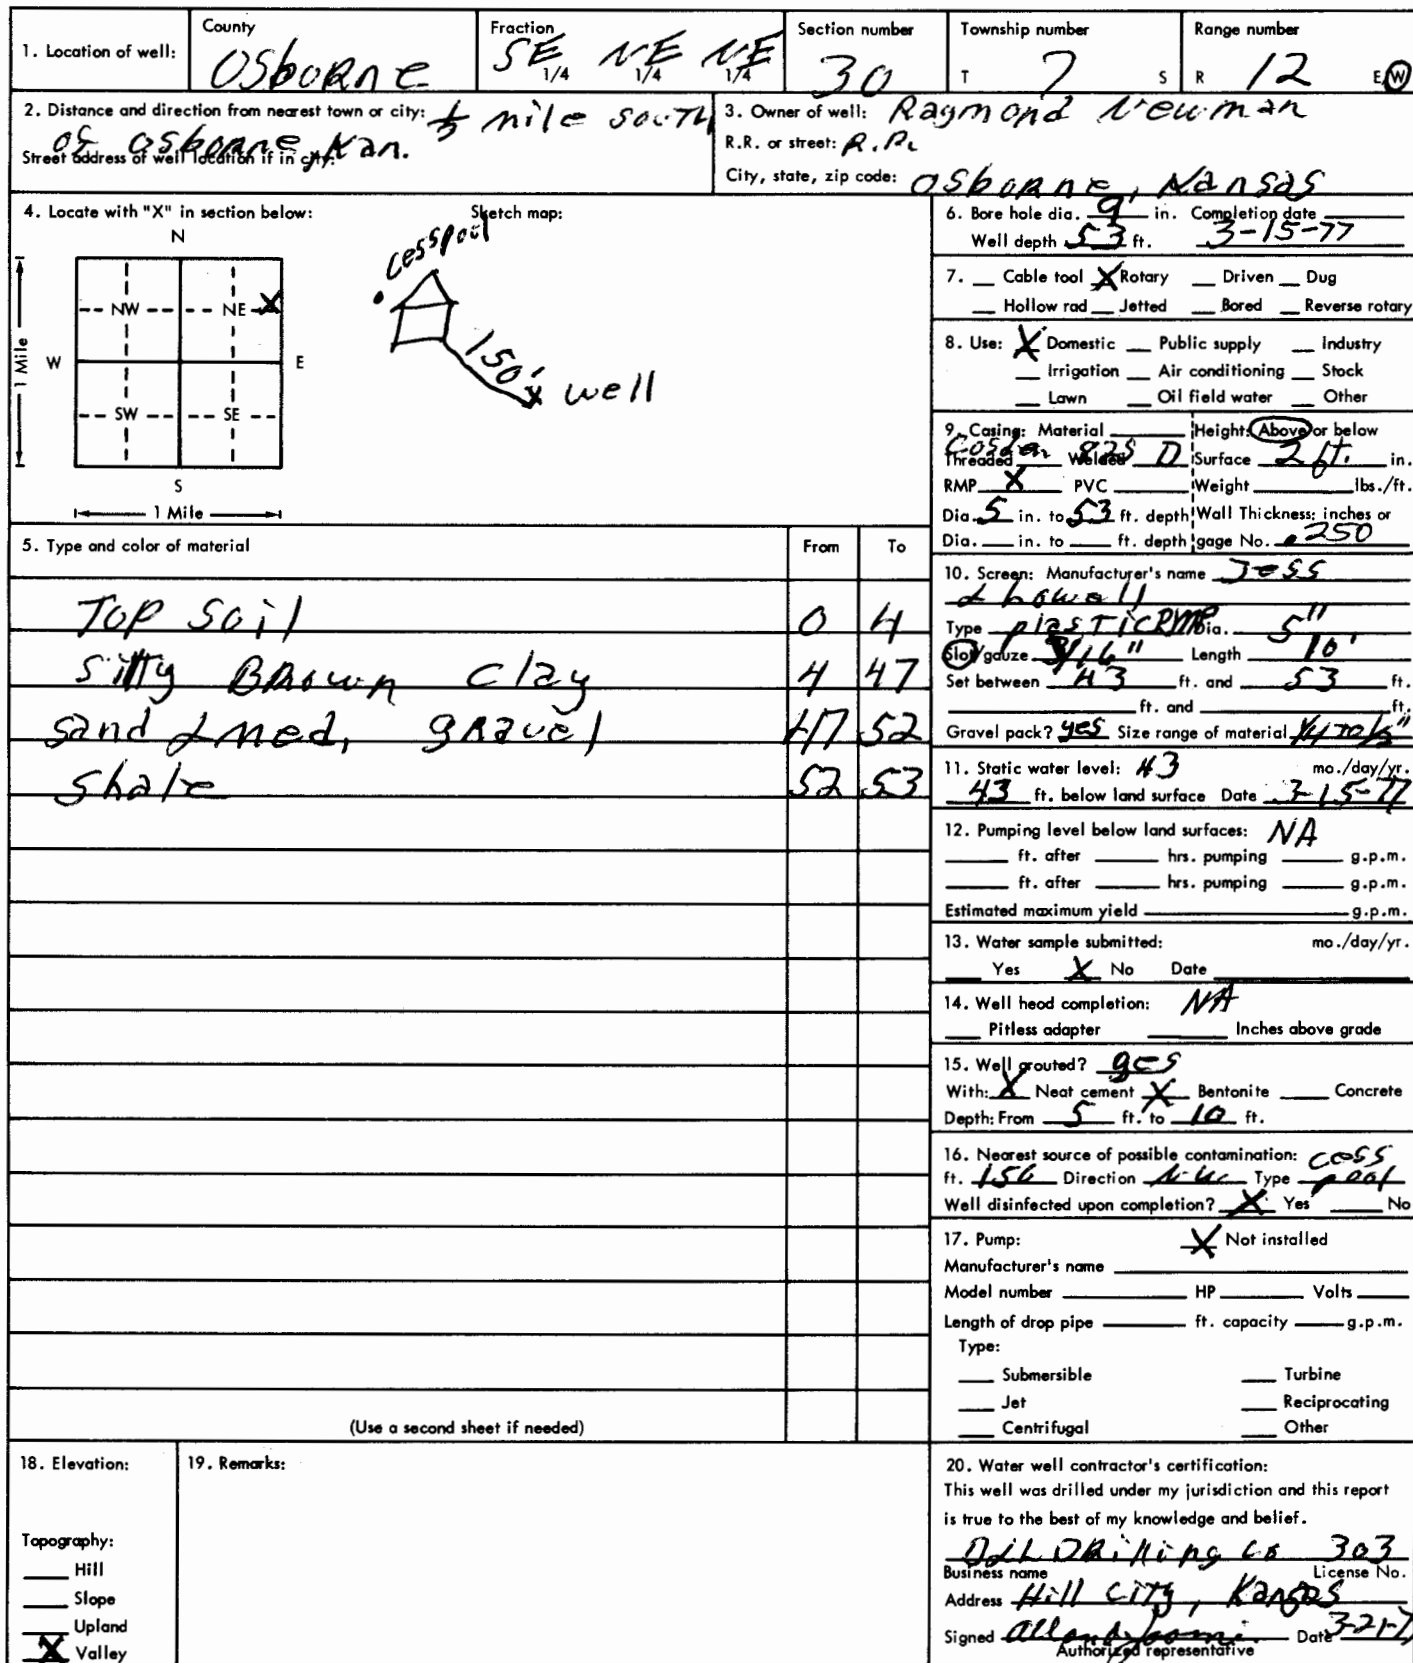 1. Location of well: County Osborne Fraction SE 1/4 NE 1/4 NE 1/4 Section number 30 Township number T 7 S Range number R 12 E/W
2. Distance and direction from nearest town or city: mile south
of Osborne, Kan.
Street address of well location if in city:
3. Owner of well: Raymond Newman
R.R. or street:
City, state, zip code: Osborne, Kansas
4. Locate with "X" in section below:
N
NW NE X
W E
SW SE
S
1 Mile
1 Mile
Sketch map:
cesspool
150'
x well
5. Type and color of material From To
Top Soil 0 4
Silty Brown Clay 4 47
sand & med, gravel 47 52
Shale 52 53
(Use a second sheet if needed)
6. Bore hole dia. 9 in. Completion date
Well depth 53 ft. 3-15-77
7. Cable tool X Rotary Driven Dug
Hollow rad Jetted Bored Reverse rotary
8. Use: X Domestic Public supply Industry
Irrigation Air conditioning Stock
Lawn Oil field water Other
9. Casing: Material Height: Above or below
Threaded Welded Surface 2 ft. in.
RMP X PVC Weight lbs./ft.
Dia. 5 in. to 53 ft. depth Wall Thickness: inches or
Dia. in. to ft. depth gage No. .250
10. Screen: Manufacturer's name Jess
& Howell
Type plastic RMP Dia. 5"
Slot/gauze 3/16" Length 10'
Set between 43 ft. and 53 ft.
ft. and ft.
Gravel pack? yes Size range of material
11. Static water level: 43 mo./day/yr.
43 ft. below land surface Date 3-15-77
12. Pumping level below land surfaces: NA
ft. after hrs. pumping g.p.m.
ft. after hrs. pumping g.p.m.
Estimated maximum yield g.p.m.
13. Water sample submitted: mo./day/yr.
Yes X No Date
14. Well head completion: NA
Pitless adapter Inches above grade
15. Well grouted? yes
With: X Neat cement X Bentonite Concrete
Depth: From 5 ft. to 10 ft.
16. Nearest source of possible contamination: cess
ft. 150 Direction Type pool
Well disinfected upon completion? X Yes No
17. Pump: X Not installed
Manufacturer's name
Model number HP Volts
Length of drop pipe ft. capacity g.p.m.
Type:
Submersible Turbine
Jet Reciprocating
Centrifugal Other
18. Elevation:
Topography:
Hill
Slope
Upland
X Valley
19. Remarks:
20. Water well contractor's certification:
This well was drilled under my jurisdiction and this report
is true to the best of my knowledge and belief.
Drilling Co 303
Business name License No.
Address Hill City, Kansas
Signed Date
Authorized representative